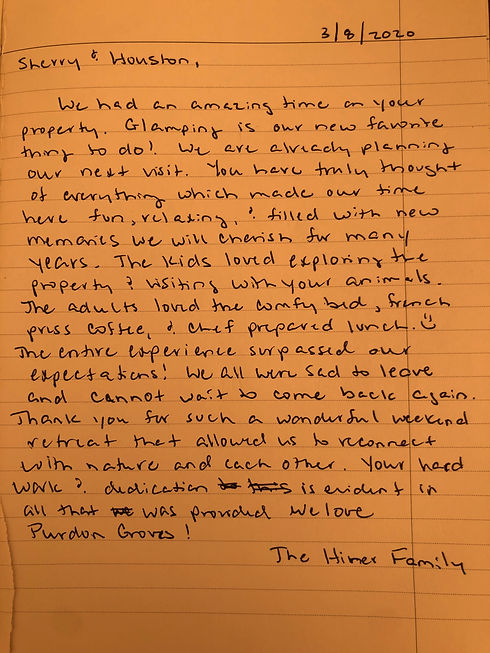 3/8/2020
Sherry & Houston,
We had an amazing time on your
property. Glamping is our new favorite
thing to do! We are already planning
our next visit. You have truly thought
of everything which made our time
here fun, relaxing, & filled with new
memories we will cherish for many
years. The kids loved exploring the
property & visiting with your animals.
The adults loved the comfy bed, french
press coffee, & chef prepared lunch.
The entire experience surpassed our
expectations! We all were sad to leave
and cannot wait to come back again.
Thank you for such a wonderful weekend
retreat that allowed us to reconnect
with nature and each other. Your hard
work & dedication is evident in
all that was provided We love
Purdon Groves!
The Himer Family